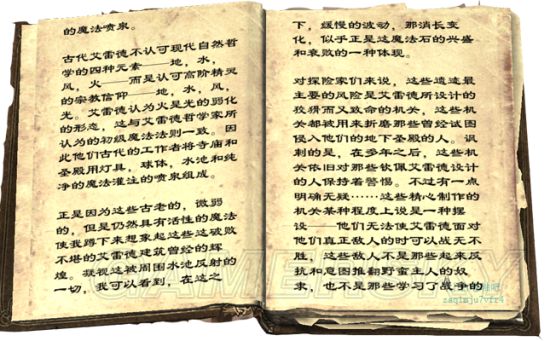 的魔法喷泉。
古代艾雷德不认可现代自然哲
学的四种元素——地，水，
风，火——而是认可高阶精灵
的宗教信仰——地，水，风，
光。艾雷德认为火是光的弱化
的形态，这与艾雷德哲学家所
认为的初级魔法法则一致。因
此他们古代的工作者将寺庙和
圣殿用灯具，球体，水池和纯
净的魔法灌注的喷泉组成。
正是因为这些古老的，微弱
的，但是仍然具有活性的魔法
使我蹲下来想象起这些这破败
不堪的艾雷德建筑曾经的辉
煌。凝视这被周围水池反射的
一切，我可以看到，在这之
下，缓慢的波动，那消长变
化，似乎正是这魔法石的兴盛
和衰败的一种体现。
对探险家们来说，这些遗迹最
主要的风险是艾雷德所设计的
狡猾而又致命的机关，这些机
关都被用来折磨那些曾经试图
侵入他们的地下圣殿的人。讽
刺的是，在多年之后，这些机
关依旧对那些钦佩艾雷德设计
的人保持着警惕。不过有一点
明确无疑……这些精心制作的
机关某种程度上说是一种摆
设——他们无法使艾雷德面对
他们真正敌人的时可以战无不
胜，这些敌人不是那些起来反
抗和意图推翻野蛮主人的奴
隶，也不是那些学习了战争的
GAMERSKY
zaqimju7vfr4